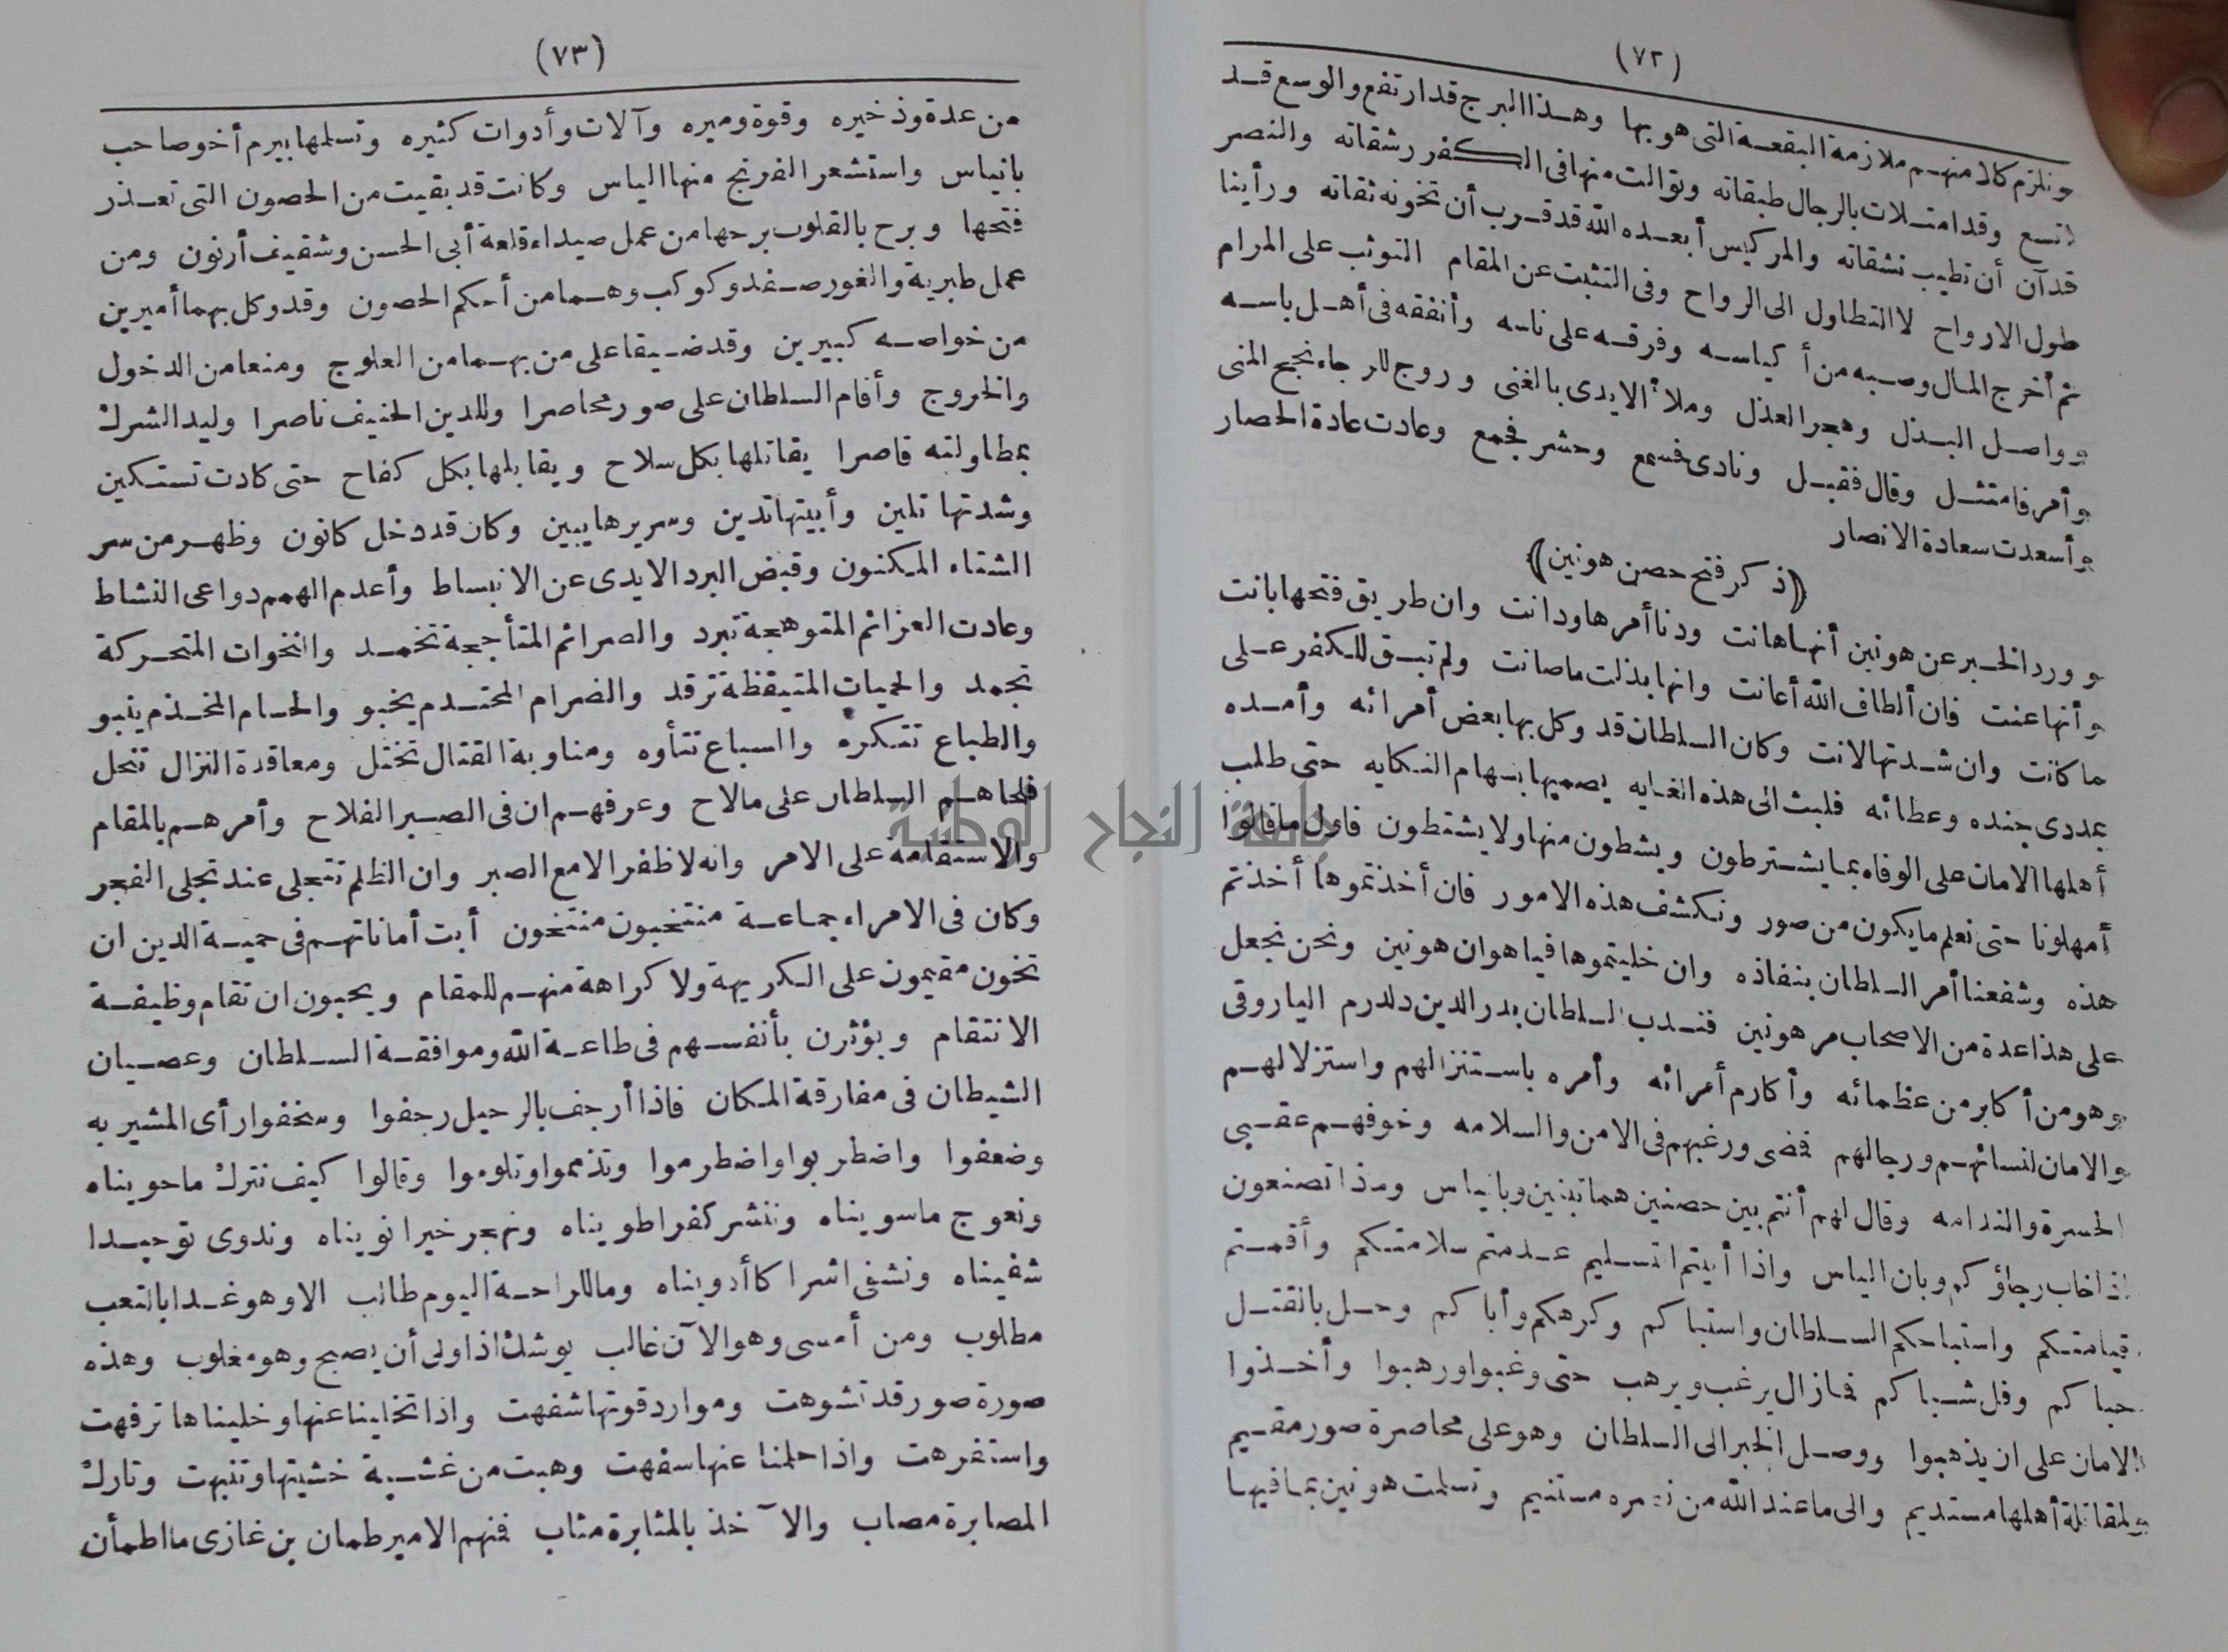 (٧٢)
ونلزم كلا منهم ملازمة البقعة التى هو بها وهذا البرج قد ارتفع والوسع قد
اتسع وقد امتلات بالرجال طبقاته وتوالت منها فى الكفر رشقاته والنصر
قد آن أن تطيب نشقاته والمركيس أبعده الله قد قرب أن تخونه ثقاته ورأينا
طول الارواح لا التطاول الى الرواح وفى التثبت عن المقام التوثب على المرام
ثم أخرج المال وصبه من أكياسه وفرقه على ناسه وأنفقه فى أهل باسه
وواصل البذل وهجر العذل وملأ الايدى بالغنى وروج للرجاء نجح المنى
وأمر فامتثل وقال فقبل ونادى فسمع وحشر فجمع وعادت عادة الحصار
وأسعدت سعادة الانصار
﴿ذكر فتح حصن هونين﴾
وورد الخبر عن هونين أنها هانت ودنا أمرها ودانت وان طريق فتحها بانت
وأنها عنت فان ألطاف الله أعانت وانها بذلت ما صانت ولم تبق للكفر على
ما كانت وان شدتها لانت وكان السلطان قد وكل بها بعض أمرائه وأمده
بمددى جنده وعطائه فلبث الى هذه الغايه يصميها بسهام النكايه حتى طلب
أهلها الامان على الوفاء بما يشترطون ويشطون منها ولا يشتطون فاول ما قالوا
أمهلونا حتى نعلم ما يكون من صور ونكشف هذه الامور فان أخذتموها أخذتم
هذه وشفعنا أمر السلطان بنفاذه وان خليتموها فيا هوان هونين ونحن نجعل
على هذا عدة من الاصحاب مرهونين فندب السلطان بدر الدين دلدرم الياروقى
وهو من أكابر من عظمائه وأكارم أمرائه وأمره باستنزالهم واستزلالهم
والامان لنسائهم ورجالهم فمضى ورغبهم فى الامن والسلامه وخوفهم عقبى
الحسرة والندامه وقال لهم أنتم بين حصنين هما تبنين وبانياس وماذا تصنعون
اذا خاب رجاؤكم وبان الياس واذا أبيتم التسليم عدمتم سلامتكم وأقمتم
قيامتكم واستباحكم السلطان واستباكم وكرهكم وأباكم وحل بالقتل
حباكم وفل شباكم فما زال يرغب ويرهب حتى رغبوا ورهبوا وأخذوا
الامان على ان يذهبوا ووصل الخبر الى السلطان وهو على محاصرة صور مقيم
ولمقاتلة أهلها مستديم والى ما عند الله من نصره مستنيم وتسلمت هونين بما فيها
(٧٣)
من عدة وذخيره وقوة وميره وآلات وأدوات كثيره وتسلمها بيرم أخو صاحب
بانياس واستشعر الفرنج منها الياس وكانت قد بقيت من الحصون التى تعذر
فتحها وبرح بالقلوب برحها من عمل صيداء قلعة أبى الحسن وشقيف أرنون ومن
عمل طبرية والغور صفد وكوكب وهما من أحكم الحصون وقد وكل بهما أميرين
من خواصه كبيرين وقد ضيقا على من بهما من العلوج ومنعا من الدخول
والخروج وأقام السلطان على صور محاصرا وللدين الحنيف ناصرا وليد الشرك
بمطاولته قاصرا يقاتلها بكل سلاح ويقابلها بكل كفاح حتى كادت تستكين
وشدتها تلين وأبيتها تدين وسريرها يبين وكان قد دخل كانون وظهر من سر
الشتاء المكنون وقبض البرد الايدى عن الانبساط وأعدم الهمم دواعى النشاط
وعادت العزائم المتوهجة تبرد والصرائم المتأججة تخمد والنخوات المتحركة
تجمد والحميات المتيقظة ترقد والضرام المحتدم يخبو والحسام المخذم ينبو
والطباع تتكره والسباع تتأوه ومناوبة القتال تختل ومعاقدة النزال تنحل
فلحاهم السلطان على ما لاح وعرفهم ان فى الصبر الفلاح وأمرهم بالمقام
والاستقامة على الامر وانه لا ظفر الا مع الصبر وان الظلم تنجلى عند تجلى الفجر
وكان فى الامراء جماعة منتخبون منتخون أبت أماناتهم فى حمية الدين ان
تخون مقيمون على الكريهة ولا كراهة منهم للمقام ويحبون ان تقام وظيفة
الانتقام ويؤثرن بأنفسهم فى طاعة الله وموافقة السلطان وعصيان
الشيطان فى مفارقة المكان فاذا أرجف بالرحيل رجفوا وسخفوا رأى المشير به
وضعفوا واضطربوا واضطرموا وتذمموا وتلوموا وقالوا كيف نترك ما حويناه
ونعوج ما سويناه وننشر كفرا طويناه ونهجر خيرا نويناه وندوى توحيدا
شفيناه ونشفى اشراكا أدويناه وما للراحة اليوم طالب الا وهو غدا بالتعب
مطلوب ومن أمسى وهو الآن غالب يوشك اذا ولى أن يصبح وهو مغلوب وهذه
صورة صور قد تشوهت وموارد قوتها شفهت واذا تخلينا عنها وخليناها ترفهت
واستفرهت واذا حلمنا عنها سفهت وهبت من غشية خشيتها وتنبهت وتارك
المصابرة مصاب والآخذ بالمثابرة مثاب فمنهم الامير طمان بن غازى ما اطمأن
جامعة النجاح الوطنية